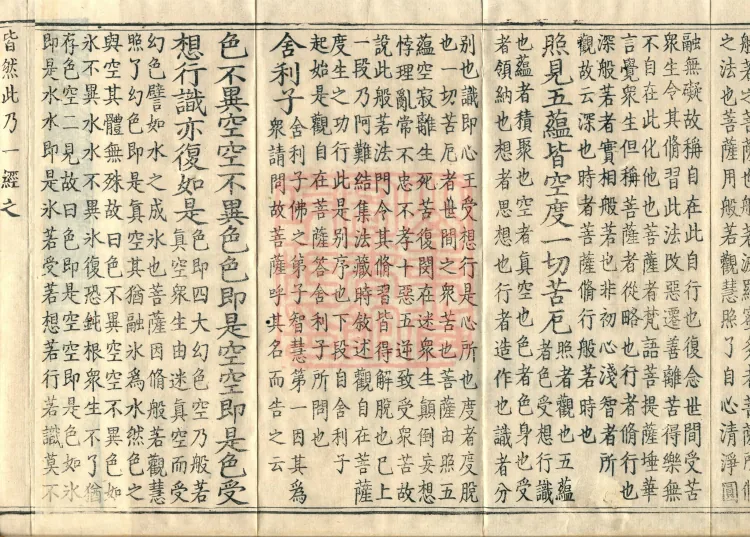 之法也菩薩用般若觀慧照了自心清淨圓
融無礙故稱自在此自行也復念世間受苦
衆生令其脩習此法改惡遷善離苦得樂無
不自在此化他也菩薩者梵語菩提薩埵華
言覺衆生但稱菩薩者從略也行者脩行也
深般若者實相般若也非初心淺智者所
觀故云深也時者菩薩脩行般若時也
照見五蘊皆空度一切苦厄
照者觀也五蘊
者色受想行識
也蘊者積聚也空者真空也色者色身也受
者領納也想者思想也行者造作也識者分
別也識即心王受想行是心所也度者度脫
也一切苦厄者世間之衆苦也菩薩由照五
蘊空寂離生死苦復閔在迷衆生顛倒妄想
悖理亂常不忠不孝十惡五逆致受衆苦故
說此般若法門令其脩習皆得解脫也已上
一段乃阿難結集法藏時叙述觀自在菩薩
度生之功行此是別序也下段自舍利子
起始是觀自在菩薩答舍利子所問也
舍利子
舍利子佛之第子智慧第一因其爲
衆請問故菩薩呼其名而告之云
色不異空空不異色色即是空空即是色受
想行識亦復如是
色即四大幻色空乃般若
真空衆生由迷真空而受
幻色譬如水之成氷也菩薩因脩般若觀慧
照了幻色即是真空其猶融氷爲水然色之
與空其體無殊故曰色不異空空不異色如
氷不異水水不異氷復恐鈍根衆生不了猶
存色空二見故曰色即是空空即是色如氷
即是水水即是氷若受若想若行若識莫不
皆然此乃一經之